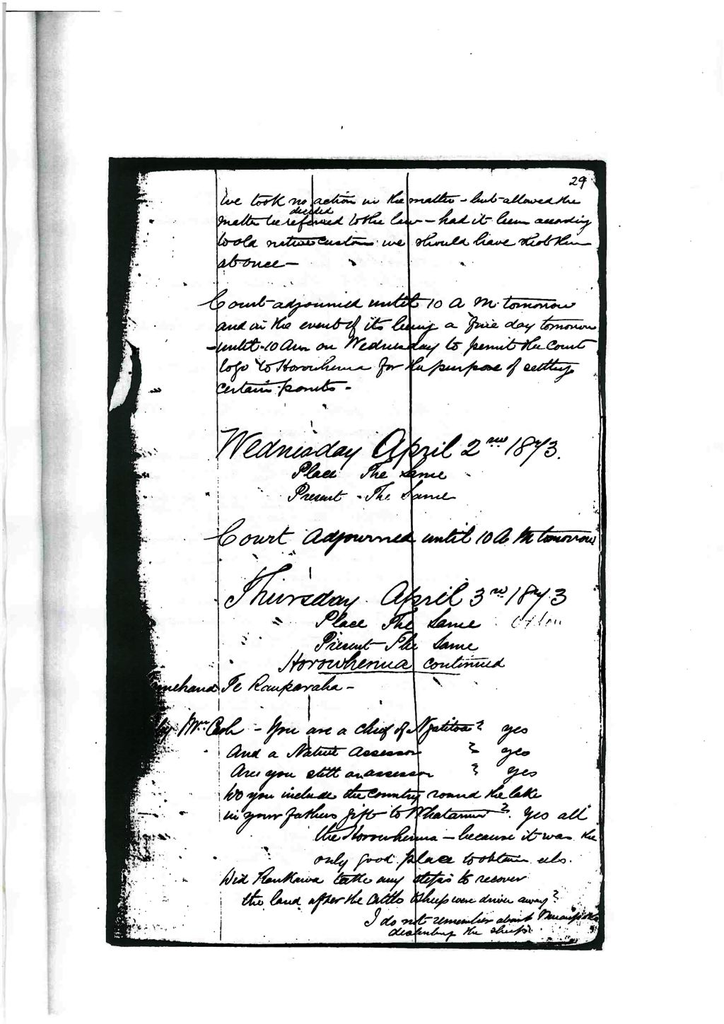 29
we took no action in the matter - but allowed the
matter be decided referred to the law - had it been according
to old native custom we should have shot them
at once -
Court adjourned until 10 A M tomorrow
and in the event of its being a fine day tomorrow
- until 10 Am on Wednesday to permit the Court
to go to Horowhenua for the purpose of settling
certain points -
Wednesday April 2nd 1873.
Place The same
Present - The Same
Court adjourned until 10 A M tomorrow
Thursday April 3rd 1873
Place The Same
Present - The Same
Horowhenua continued
Te Rauparaha -
by Mr - You are a chief of ? yes
And a Native Assessor ? yes
Are you still an assessor ? yes
Do you include the country round the lake
in your fathers gift to Whatanui ? yes all
the Horowhenua - because it was the
only good place to obtain eels.
Did Raukawa take any steps to recover
the land after the Cattle & sheep were driven away ?
I do not remember about
the sheep.